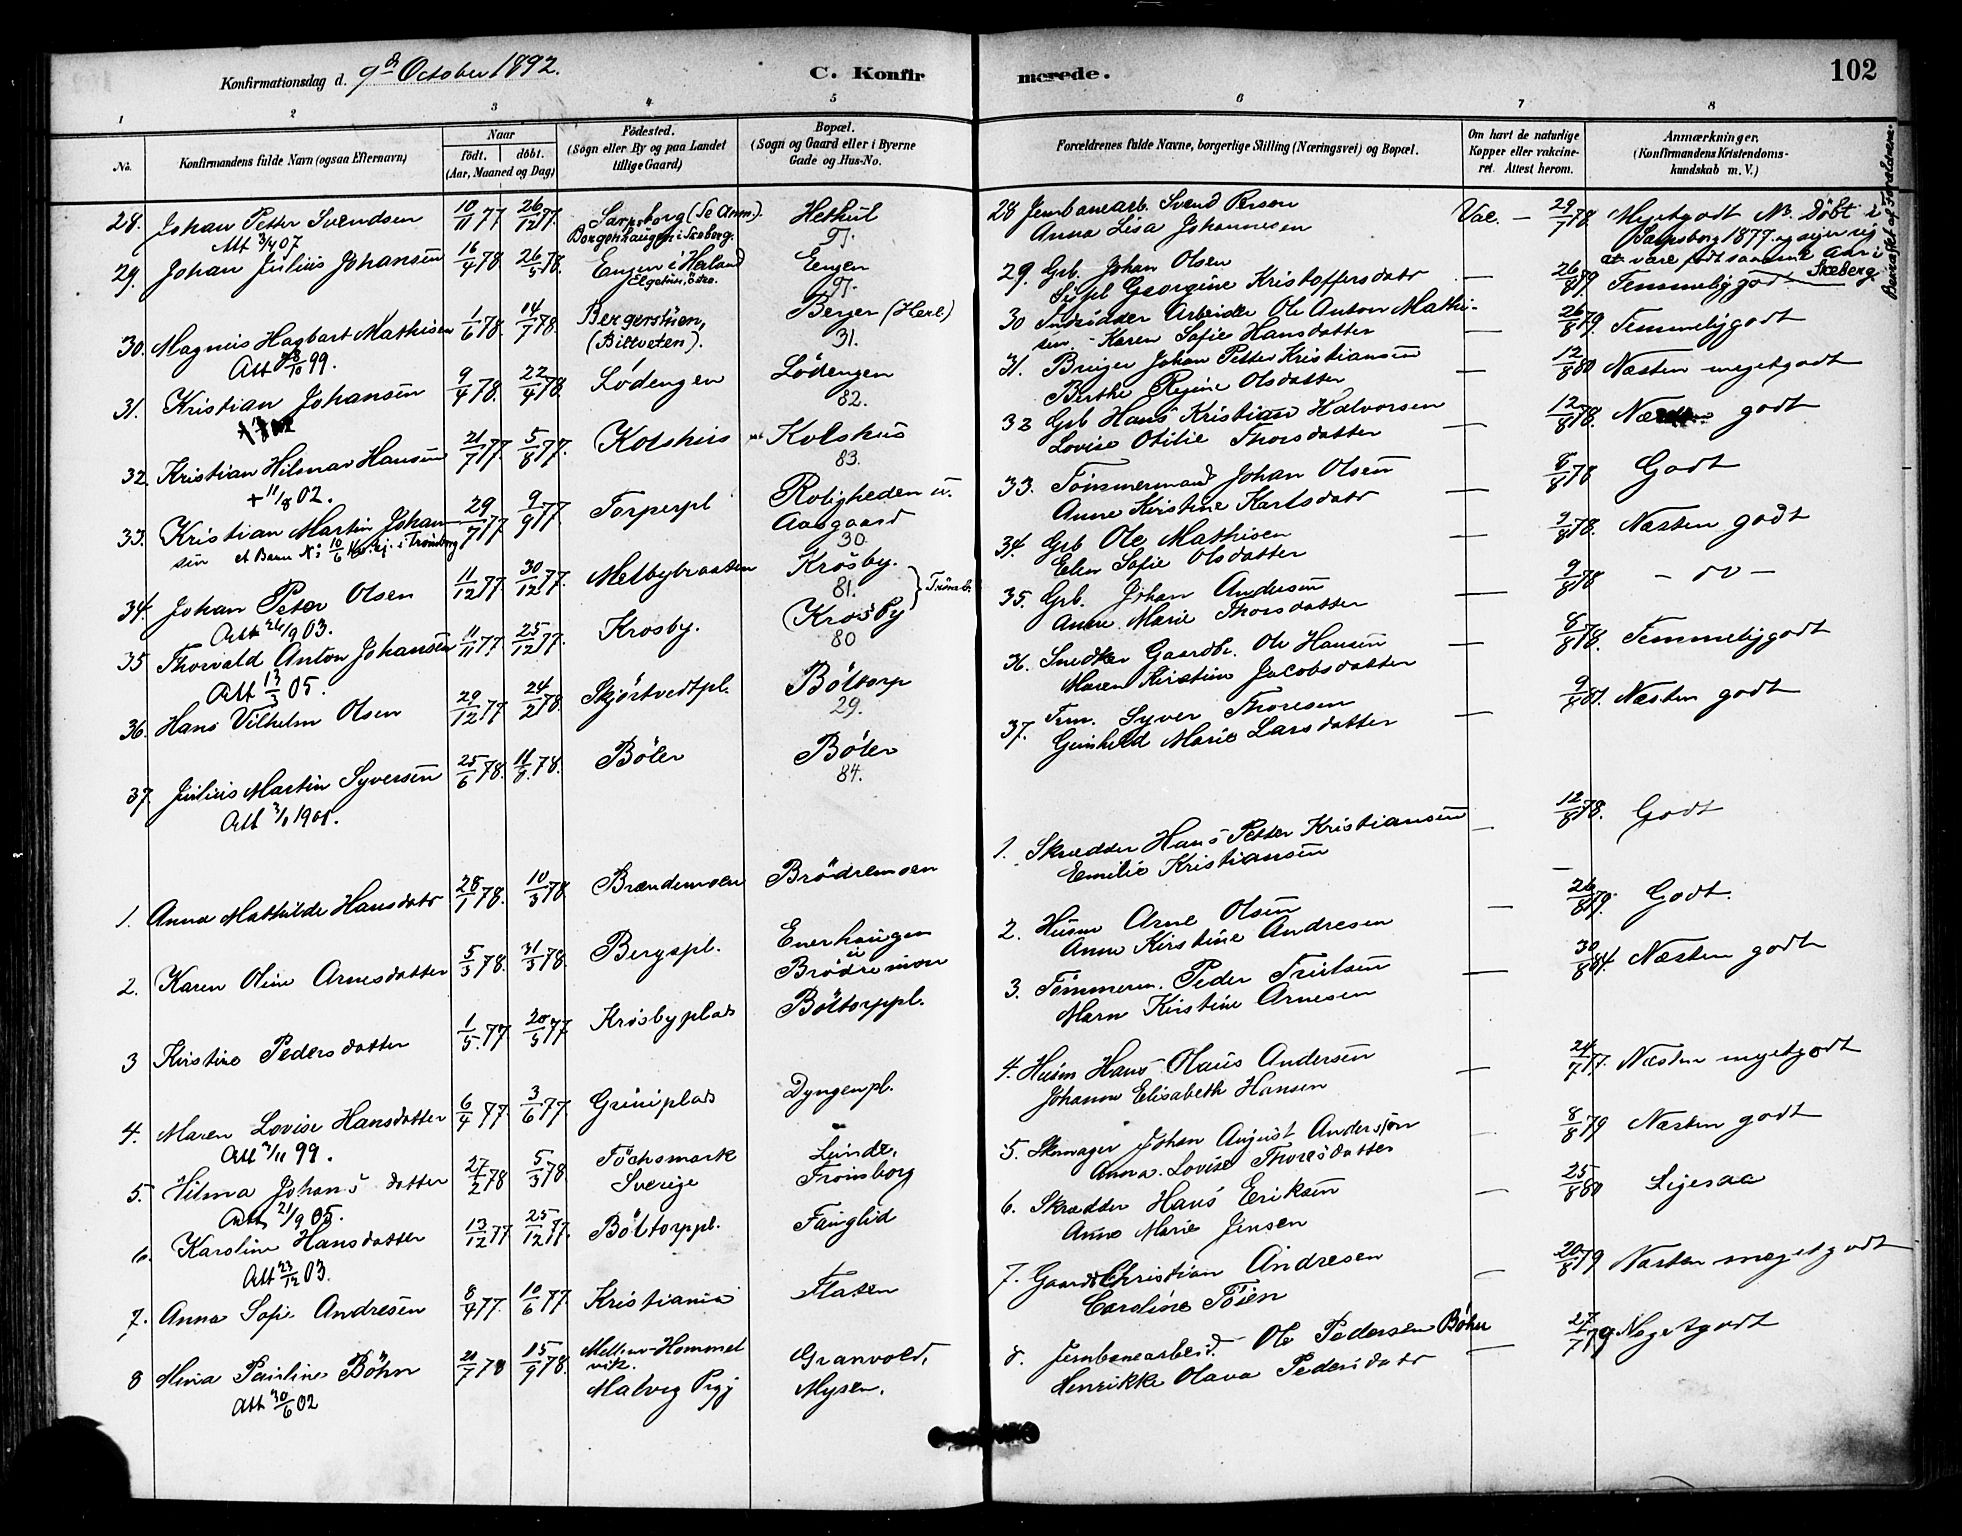 Konfirmationsdag d. 9de October 1892.
C. Konfirmerede.
102
1 2 3 4 5 6 7 8
No.
Konfirmandens fulde Navn (ogsaa Efternavn)
Naar
født. døbt.
(Aar, Maaned og Dag)
Fødested.
(Sogn eller By og paa Landet
tillige Gaard)
Bopæl.
(Sogn og Gaard eller i Byerne
Gade og Hus-No.
Forældrenes fulde Navne, borgerlige Stilling (Næringsvei) og Bopæl.
Om havt de naturlige
Kopper eller vakcine-
ret. Attest herom.
Anmærkninger,
(Konfirmandens Kristendoms-
kundskab m. V.)
28. Johan Petter Svendsen 10/11 77 26/12 77. Sarpsborg (Se Anm.) Hethul
Att 3/4 07 Borgenhaugen i Skeberg. 97.
28 Jernbanearb. Svend Person Vac. — 29/7 78 Megetgodt N. Døbt i
Anna Lisa Johannesen Sarpsborg 1877 og siger sig
at være født samme Aar i
Skeberg
Bekræftet af Forældrene
29. Johan Julius Johansen 16/4 78 26/5 78. Engen i Herland Eengen
97.
29. Grb. Johan Olsen — 26/8 79 Temmelig godt
Georgine Kristoffersdatr
30. Magnus Hagbart Mathisen 1/6 78. 14/7 78. Bergerstuen, Berger (Herl)
Att 8/10 99. (Biltveten). 31.
30 Indridder Arbeider Ole Anton Mathi- 26/8 79. Temmeliggodt
sen. - Karen Sofie Hansdatter —
31. Kristian Johansen 9/4 78. 22/4 78. Lødengen Lödengen
82.
31. Bruger Johan Petter Kristiansen — 12/8 80 Næsten megetgodt
Berthe Regine Olsdatter
32. Kristian Hilmar Hansen 21/7 77. 5/8 77. Kolshus Kolshus
+ 11/8 02. 83.
32 Grb Hans Kristian Halvorsen — 12/8 78. godt
Lovise Otilie Thorsdatter
33. Kristian Martin Johan- 29/7 77 9/9 77. Torperpl Roligheden u.
sen Aasgaard
30.
33. Tömmermand Johan Olsen — 8/8 78 Godt
Anne Kirstine Karlsdatr
34. Johan Peter Olsen 11/12 77. 30/12 77. Melbybraaten Krösby.
Att 26/9 03. 81.
34. Grb Ole Mathisen — 9/8 78. Næsten godt
Elen Sofie Olsdatter
35 Thorvald Anton Johansen 11/11 77 25/12 77. Krosby. Krosby
Att 13/3 05. 80
35. Grb. Johan Andersen — 9/8 78 - do -
Anne Marie Thorsdatter
36. Hans Vilhelm Olsen 29/12 77 24/2 78. Skjørtvedtpl. Böltorp
29.
36. Snedker Gaardbr. Ole Hansen — 8/8 78. Temmeliggodt
Maren Kirstine Jacobsdatter
37. Julius Martin Syversen 25/6 78. 11/8 78. Böler Böler
Att 1901. 84.
37. Tm. Syver Thoresen — 9/8 81. Næsten godt
Gunhild Marie Larsdatter
1. Anna Mathilde Hansdatr 28/1 78. 10/3 78 Brændemoen Brödremoen
1. Skrædder Hans Petter Kristiansen — 12/8 78. Godt
Emilie Kristiansen
2. Karen Oline Arnesdatter 5/3 78. 31/3 78. Bergspl. Enerhaugen
u
Brödremoen
2. Husm Arne Olsen — 26/8 79. Godt.
Anne Kirstine Andresen
3 Kirstine Pedersdatter 1/5 77. 20/5 77 Krösbyplads Böltorppl.
3. Tömmerm. Peder Truelsen — 30/8 84. Næsten godt
Maren Kirstine Arnesen
4. Maren Lovise Hansdatter 6/4 77. 3/6 77. Gruniplads Dyngenpl.
Att 2/11 99.
4. Husm Hans Olaus Andersen — 24/7 77. Næsten megetgodt
Johanne Elisabeth Hansen
5. Hilma Johansdatter 27/2 78 5/3 78. Töcksmark Lunde,
Att 21/9 05. Sverige Trömborg
5. Skomager Johan August Andersson 8/8 79 Næsten godt
Anna Lovise Thoresdatter
6. Karoline Hansdatter 13/12 77 25/12 77. Böltorppl. Fanglid
Att 23/12 03.
6. Skrædder Hans Eriksen — 25/8 80 Ligesaa
Anne Marie Jensen
7. Anna Sofie Andresen 8/4 77. 10/6 77. Kristiania Flaten
7. Gaardb Christian Andresen — 20/8 79 Næsten megetgodt
Caroline Töien
8 Mina Pauline Böhn 20/7 78 15/9 78. Hommel Granvold,
Att 30/6 02 vik.
Malvig Prgj Mysen.
8. Jernbanearbeid. Ole Pedersen Böhn — 27/7 79 Megetgodt
Henrikke Olava Pedersdatr